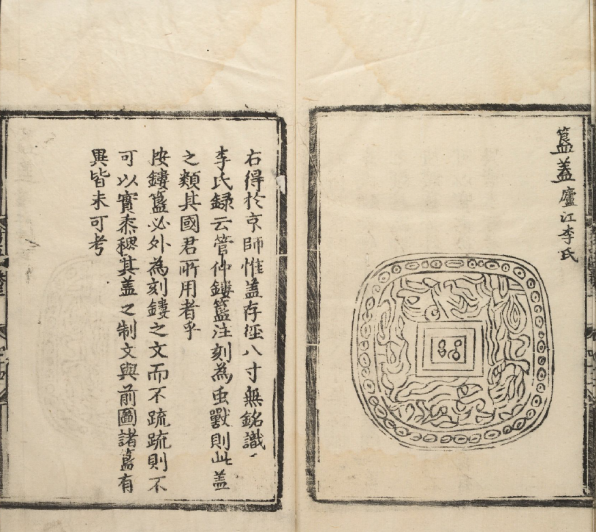 簋蓋 廬江李氏
右得於京師惟蓋存徑八寸無銘識
李氏録云管仲鏤簋注刻為虫獸則此蓋
之類其國君所用者乎
按鏤簋必外為刻鏤之文而不疏疏則不
可以實黍稷其蓋之制文與前圖諸簋有
異皆未可考